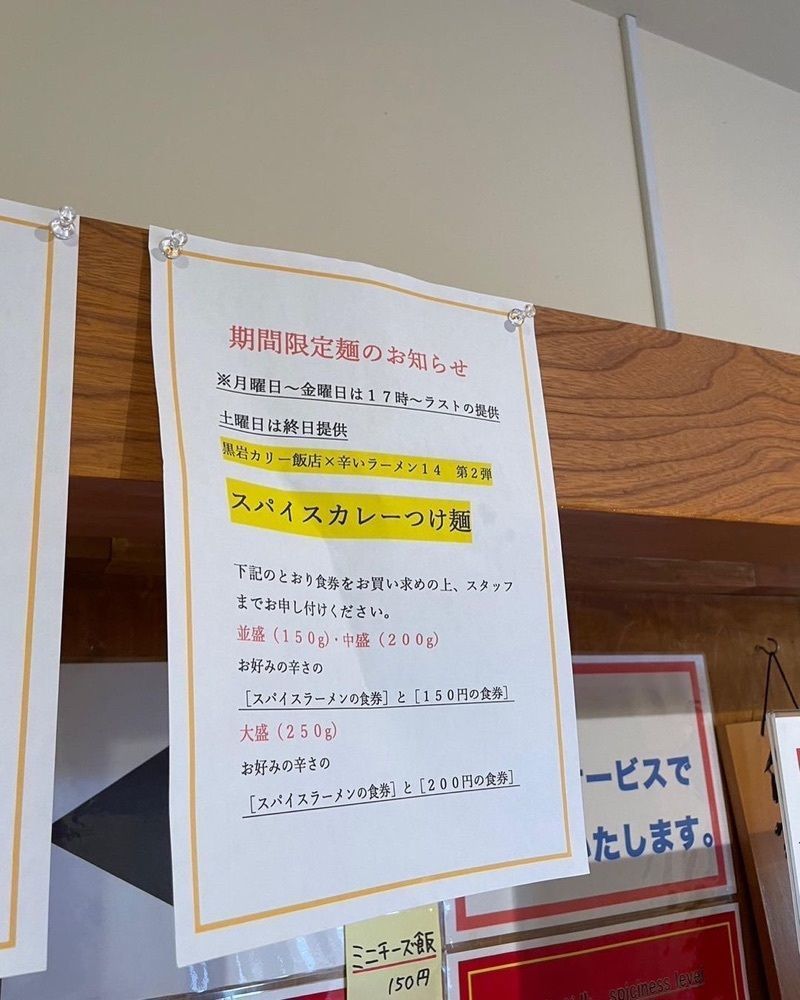 期間限定麺のお知らせ
※月曜日～金曜日は１７時～ラストの提供
土曜日は終日提供
黒岩カリー飯店×辛いラーメン１４　第２弾
スパイスカレーつけ麺
下記のとおり食券をお買い求めの上、スタッフ
までお申し付けください。
並盛（１５０g）・中盛（２００g）
お好みの辛さの
［スパイスラーメンの食券］と［１５０円の食券］
大盛（２５０g）
お好みの辛さの
［スパイスラーメンの食券］と［２００円の食券］
ービスで
いたします。
ミニチーズ飯
150円
spiciness level